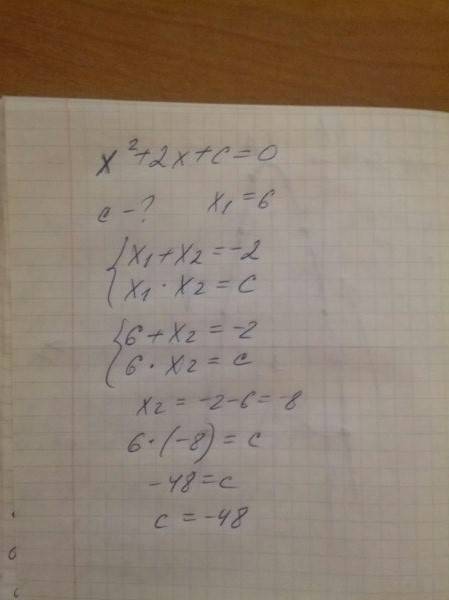 x²+2x+c=0
c-? x₁=6
{x₁+x₂=-2
{x₁·x₂=c
{6+x₂=-2
{6·x₂=c
x₂=-2-6=-8
6·(-8)=c
-48=c
c=-48